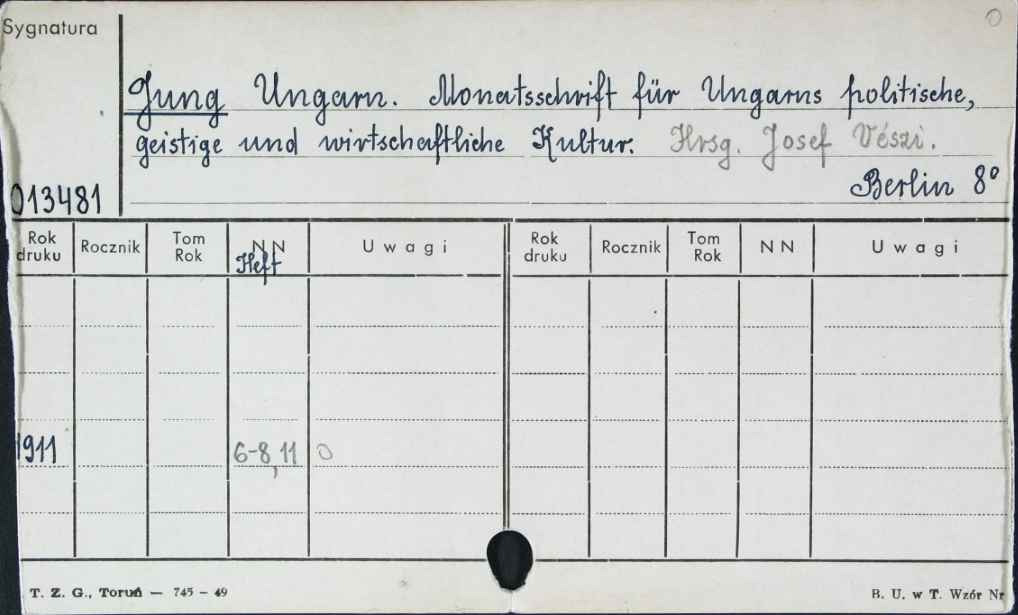 Sygnatura
0
Jung Ungarn. Monatsschrift für Ungarns politische,
geistige und wirtschaftliche Kultur. Hrsg. Josef Vészi.
Berlin 8°
013481
Rok druku Rocznik Tom Rok NN Heft Uwagi Rok druku Rocznik Tom Rok NN Uwagi
1911 6-8, 11 0
T. Z. G., Toruń — 745 – 49 B. U. w T. Wzór Nr